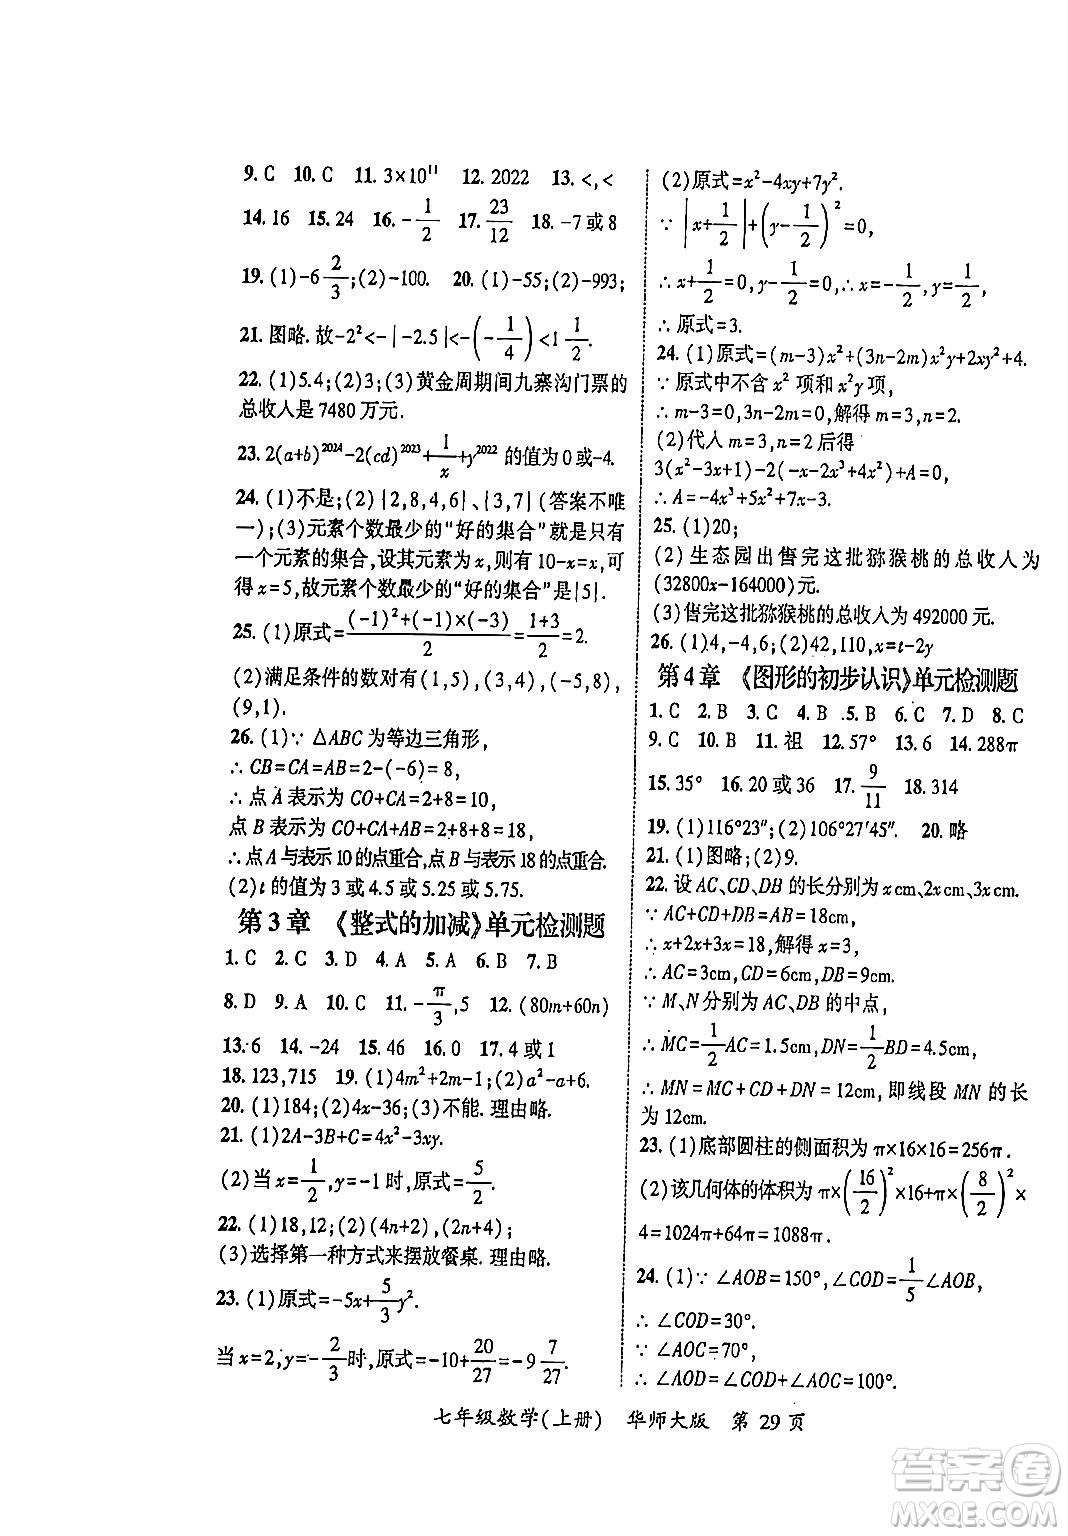 9. C 10. C 11. 3×10¹¹ 12. 2022 13. <,<
14. 16 15. 24 16. -1/2 17. 23/12 18. -7或8
19. (1)-6 2/3;(2)-100. 20. (1)-55;(2)-993;
21. 图略. 故-2²<-|-2.5|<-(-1/4)<1 1/2.
22. (1)5.4;(2)3;(3)黄金周期间九寨沟门票的
总收人是7480万元.
23. 2(a+b)²⁰²⁴-2(cd)²⁰²³+1/x+y²⁰²² 的值为0或-4.
24. (1)不是;(2){2,8,4,6}、{3,7}(答案不唯
一);(3)元素个数最少的“好的集合”就是只有
一个元素的集合,设其元素为x,则有10-x=x,可
得x=5,故元素个数最少的“好的集合”是{5}.
25. (1)原式=((-1)²+(-1)×(-3))/2=(1+3)/2=2.
(2)满足条件的数对有(1,5),(3,4),(-5,8),
(9,1).
26. (1)∵△ABC为等边三角形,
∴CB=CA=AB=2-(-6)=8,
∴点A表示为CO+CA=2+8=10,
点B表示为CO+CA+AB=2+8+8=18,
∴点A与表示10的点重合,点B与表示18的点重合.
(2)t的值为3或4.5或5.25或5.75.
第3章 《整式的加减》单元检测题
1. C 2. C 3. D 4. A 5. A 6. B 7. B
8. D 9. A 10. C 11. -π/3,5 12. (80m+60n)
13. 6 14. -24 15. 46 16. 0 17. 4或1
18. 123,715 19. (1)4m²+2m-1;(2)a²-a+6.
20. (1)184;(2)4x-36;(3)不能. 理由略.
21. (1)2A-3B+C=4x²-3xy.
(2)当x=1/2,y=-1时,原式=5/2.
22. (1)18,12;(2)(4n+2),(2n+4);
(3)选择第一种方式来摆放餐桌. 理由略.
23. (1)原式=-5x+5/3y².
当x=2,y=-2/3时,原式=-10+20/27=-9 7/27.
(2)原式=x²-4xy+7y².
∵|x+1/2|+(y-1/2)²=0,
∴x+1/2=0,y-1/2=0,∴x=-1/2,y=1/2,
∴原式=3.
24. (1)原式=(m-3)x²+(3n-2m)x²y+2xy²+4.
∵原式中不含x²项和x²y项,
∴m-3=0,3n-2m=0,解得m=3,n=2.
(2)代人m=3,n=2后得
3(x²-3x+1)-2(-x-2x³+4x²)+A=0,
∴A=-4x³+5x²+7x-3.
25. (1)20;
(2)生态园出售完这批猕猴桃的总收人为
(32800x-164000)元.
(3)售完这批猕猴桃的总收人为492000元.
26. (1)4,-4,6;(2)42,110,x=t-2y
第4章 《图形的初步认识》单元检测题
1. C 2. B 3. C 4. B 5. B 6. C 7. D 8. C
9. C 10. B 11. 祖 12. 57° 13. 6 14. 288π
15. 35° 16. 20或30 17. 9/11 18. 314
19. (1)116°23″;(2)106°27′45″. 20. 略
21. (1)图略;(2)9.
22. 设AC、CD、DB的长分别为xcm、2xcm、3xcm.
∵AC+CD+DB=AB=18cm,
∴x+2x+3x=18,解得x=3,
∴AC=3cm,CD=6cm,DB=9cm.
∵M、N分别为AC、DB的中点,
∴MC=1/2AC=1.5cm,DN=1/2BD=4.5cm,
∴MN=MC+CD+DN=12cm,即线段MN的长
为12cm.
23. (1)底部圆柱的侧面积为π×16×16=256π.
(2)该几何体的体积为π×(16/2)²×16+π×(8/2)²×
4=1024π+64π=1088π.
24. (1)∵∠AOB=150°,∠COD=1/5∠AOB,
∴∠COD=30°.
∵∠AOC=70°,
∴∠AOD=∠COD+∠AOC=100°.
七年级数学(上册) 华师大版 第29页
答案圈
MXQE.COM